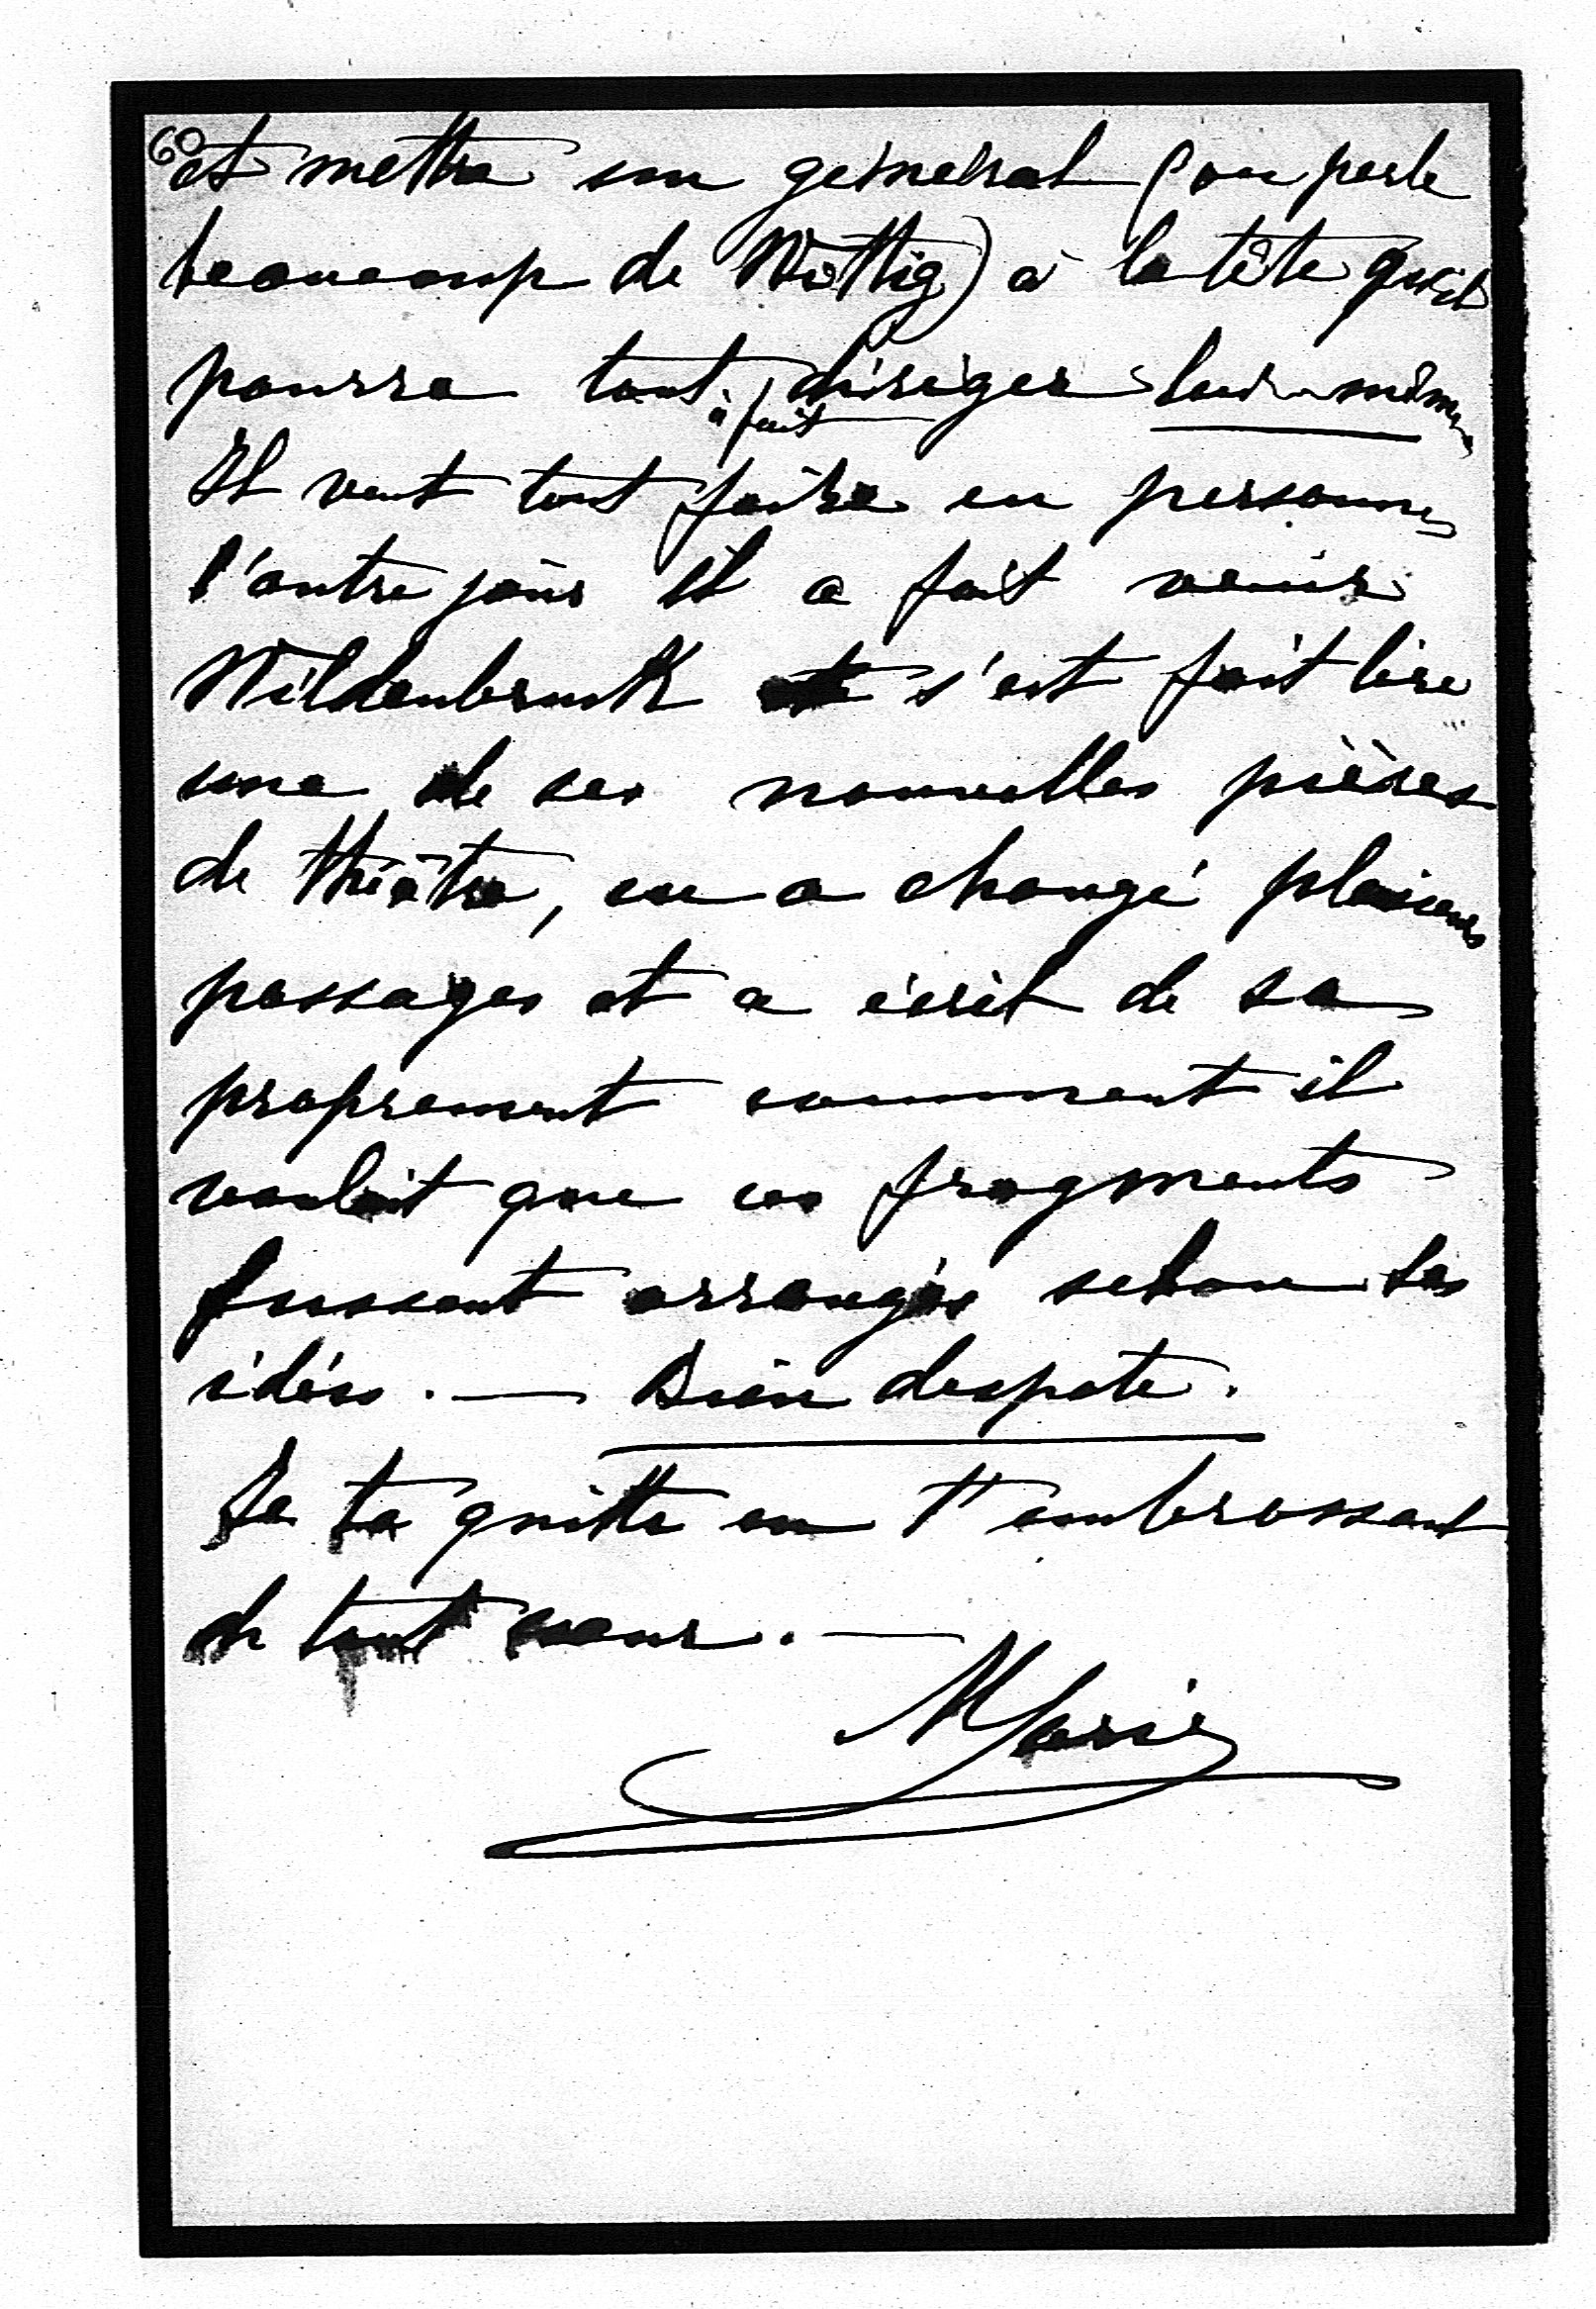 60
et mettre un général (on parle
beaucoup de Wittig) à la tête qu'il
pourra tout à fait diriger lui-même
Il veut tout faire en personne
l'autre jour il a fait venir
Wildenbruck s'est fait lire
une de ses nouvelles pièces
de théâtre, en a changé plusieurs
passages et a écrit de sa
proprement comment il
voulait que ces fragments
fussent arrangés selon ses
idées. — Bien despote.
Je te quitte en t'embrassant
de tout cœur. —
Marie